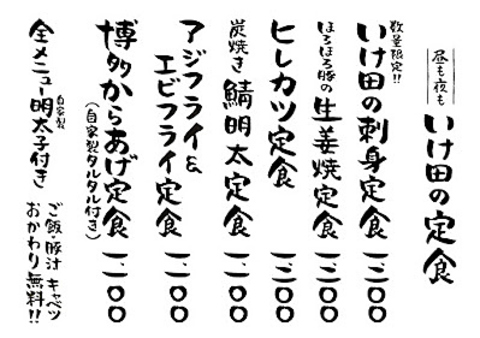 昼も夜も
いけ田の定食
数量限定!!
いけ田の刺身定食 一三〇〇
ほろほろ豚の
生姜焼定食 一三〇〇
ヒレカツ定食 一三〇〇
炭焼き 鯖明太定食 一、一〇〇
アジフライ&
エビフライ定食 一、一〇〇
博多からあげ定食 一、一〇〇
(自家製タルタル付き)
自家製
全メニュー明太子付き
ご飯・豚汁 キャベツ
おかわり無料!!